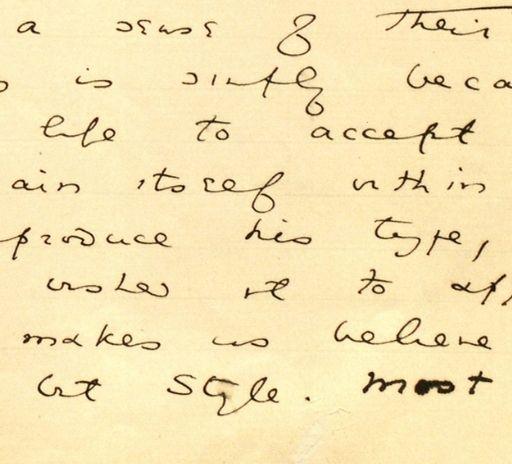 a sense of their
is simply beca
life to accept
ain itself within
produce his type,
wishes it to ap
makes us believe
but Style. Most